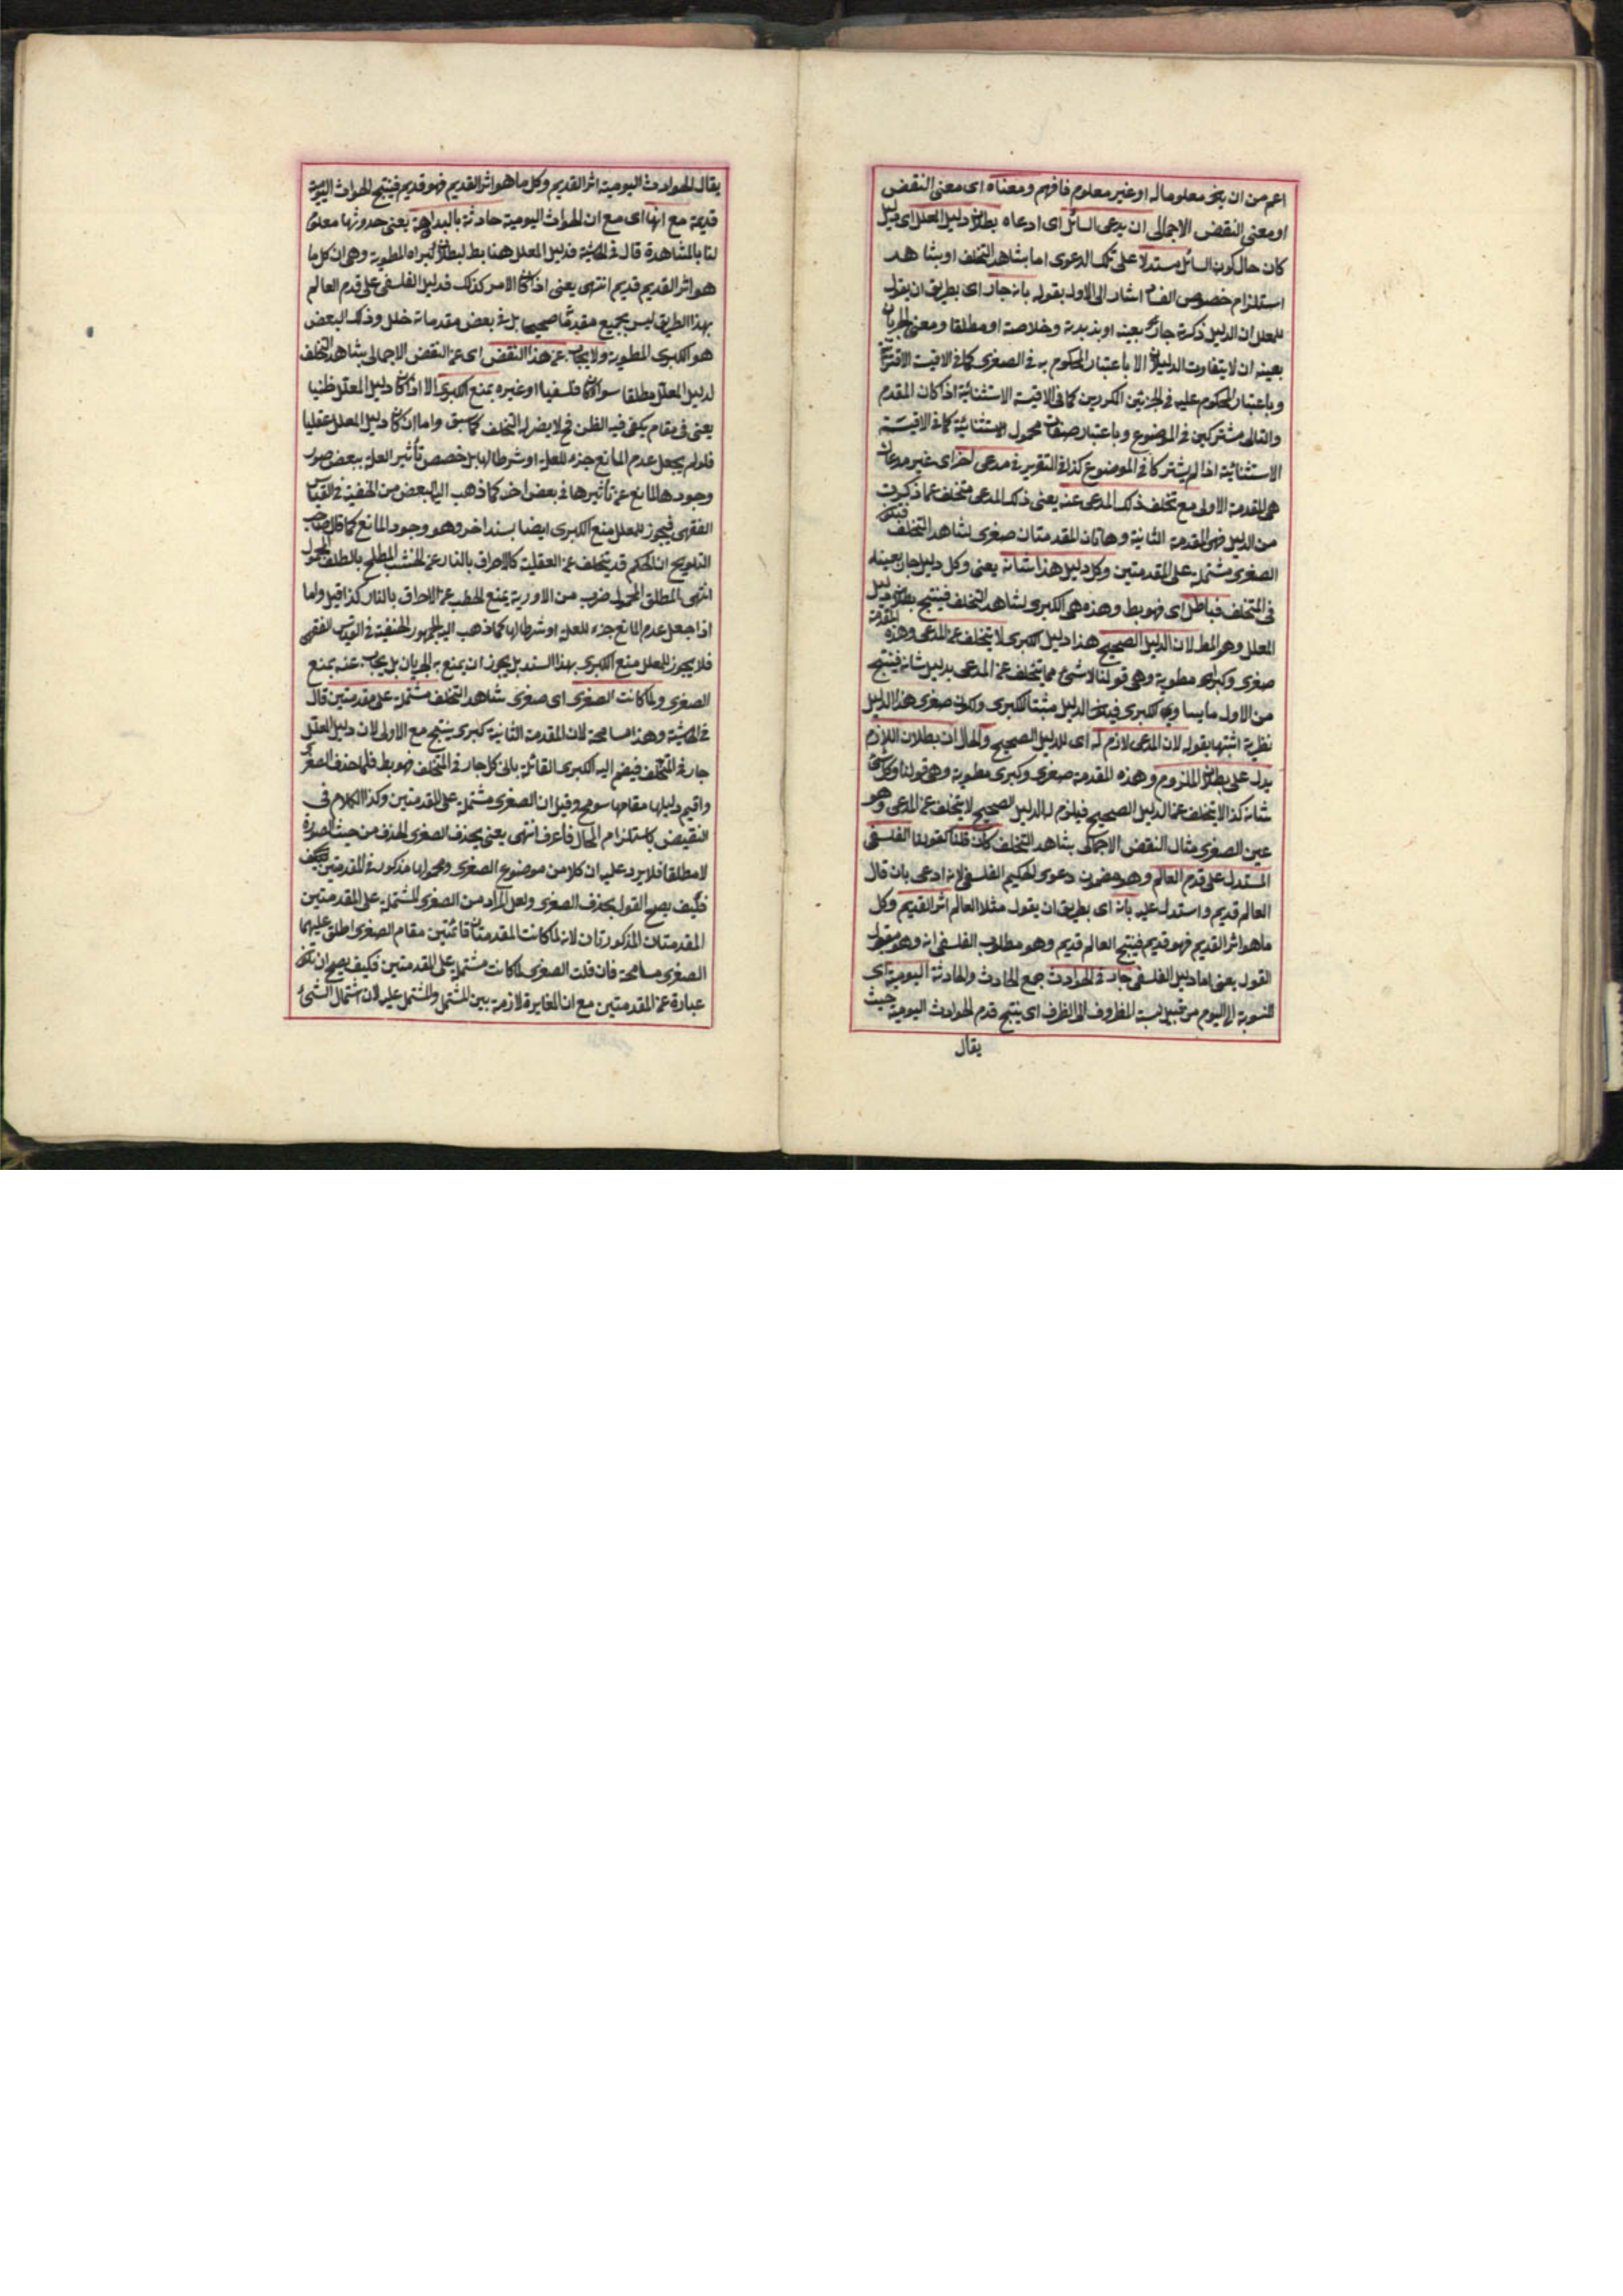 اعم من ان يكون معلوما له او غير معلوم فافهم ومعناه اى معنى النقض
او معنى النقض الاجمالى ان يدعى السائل اى ادعاه بطلان دليل المعلل اى دليل
كان حال كون السائل مستدلا على تلك الدعوى اما بشاهد التخلف او بشاهد
استلزام خصوص الفساد اشار الى الاول بقوله بانه جار اى بطريق ان يقول
للمعلل ان الدليل ذكرته جار بعينه او بزبدته وخلاصته او مطلقا ومعنى الجريان
بعينه ان لا يتفاوت الدليلان الا باعتبار المحكوم به فى الصغرى كما فى الاقيسة الاقترانية
وباعتبار المحكوم عليه فى الجزئين الكبريين كما فى الاقيسة الاستثنائية اذا كان المقدم
والتالى مشتركين فى الموضوع وباعتبار محمول الاستثنائية كما فى الاقيسة
الاستثنائية اذا لم يشتركا فى الموضوع كذا فى التقرير فى مدعى اخر اى غير مدعاك
هى المقدمة الاولى مع تخلف ذلك المدعى عنه يعنى ذلك المدعى متخلف عما ذكرت
من الدليل فهى المقدمة الثانية وهاتان المقدمتان صغرى لشاهد التخلف فيكون
الصغرى مشتملة على المقدمتين وكل دليل هذا شانه يعنى وكل دليل جار بعينه
فى المتخلف فباطل اى فهو بط وهذه هى الكبرى لشاهد التخلف فينتج بطلان دليل
المعلل وهو المط لان الدليل الصحيح هذا دليل الكبرى لا يتخلف عنه المدعى وهذه المقدمة
صغرى وكبراه مطوية وهى قولنا لا شئ مما يتخلف عنه المدعى بدليل شانه فينتج
من الاول ما يساوى الكبرى فيكون الدليل مثبتا للكبرى ولكون صغرى هذا الدليل
نظرية اثبتها بقوله لان المدعى لازم له اى للدليل الصحيح والحال ان بطلان اللازم
يدل على بطلان الملزوم وهذه المقدمة صغرى وكبرى مطوية وهى قولنا وكل شئ
شانه كذا لا يتخلف عنه الدليل الصحيح فيلزم له الدليل الصحيح لا يتخلف عنه المدعى وهو
عين الصغرى مثال النقض الاجمالى بشاهد التخلف كان قلنا كقولنا الفلسفى
المستدل على قدم العالم وهو مضمون دعوى الحكيم الفلسفى لانه ادعى بان قال
العالم قديم واستدل عليه بانه اى بطريق ان يقول مثلا العالم اثر القديم وكل
ما هو اثر القديم فهو قديم فينتج العالم قديم وهو مطلوب الفلسفى انه وهو مقول
القول يعنى اما دليل الفلسفى جار فى الحوادث جمع الحادث والحادثة اليومية اى
المنسوبة الى اليوم من قبيل نسبة المظروف الى الظرف اى ينتج قدم الحوادث اليومية حيث
يقال
يقال الحوادث اليومية اثر القديم وكل ما هو اثر القديم فهو قديم فينتج الحوادث اليومية
قديمة مع انها اى مع ان الحوادث اليومية حادثة بالبداهة يعنى حدوثها معلوم
لنا بالمشاهدة قال فى الحاشية فدليل المعلل هنا بط لبطلان كبراه المطوية وهى ان كل ما
هو اثر القديم قديم انتهى يعنى اذا كان الامر كذلك فدليل الفلسفى على قدم العالم
بهذا الطريق ليس بجميع مقدماته صحيحا بل فى بعض مقدماته خلل وذلك البعض
هو الكبرى المطوية ولا يجاب عن هذا النقض اى عن النقض الاجمالى بشاهد التخلف
لدليل المعلل مطلقا سواء كان فلسفيا او غيره بمنع الكبرى الا اذا كان دليل المعلل ظنيا
يعنى فى مقام يكفى فيه الظن فح لا يضر له التخلف كما سبق واما ان كان دليل المعلل عقليا
فلو لم يجعل عدم المانع جزء للعلة او شرطا لها بل خصص تأثير العلة ببعض صور
وجودها لمانع عن تأثيرها فى بعض اخر كما ذهب اليه البعض من الحنفية فى القياس
الفقهى فيجوز للمعلل منع الكبرى ايضا بسند اخر وهو وجود المانع كما قال صاحب
التلويح ان الحكم قد يتخلف عن العقلية كالاحراق بالنار عن الخشب المطلى بالطلق المحلول
انتهى المطلق المحلول ضرب من الادوية يمنع الحطب عن الاحراق بالنار كذا قيل واما
اذا جعل عدم المانع جزء للعلة او شرطا لها كما ذهب اليه الجمهور الحنفية فى القياس الفقهى
فلا يجوز للمعلل منع الكبرى بهذا السند بل يجوز ان يمنع به الجريان بل يجاب عنه بمنع
الصغرى ولما كانت الصغرى اى صغرى شاهد التخلف مشتملة على مقدمتين قال
فى الحاشية وهذا مسامحة لان المقدمة الثانية كبرى ينتج مع الاولى لان دليل المعلل
جار فى المتخلف فيضم اليه الكبرى القائلة بان كل جار فى المتخلف فهو بط فلما حذف الصغرى
واقيم دليلها مقامها سومح وقيل ان الصغرى مشتملة على المقدمتين وكذا الكلام فى
النقيض كاستلزام المحال فاعرف انتهى يعنى بحذف الصغرى الحذف من حيث الصورة
لا مطلقا فلا يرد عليه ان كلا من موضوع الصغرى ومحمولها مذكور فى المقدمتين
فكيف يصح القول بحذف الصغرى ولعل المراد من الصغرى المشتملة على المقدمتين
المقدمتان المذكورتان لانه لما كانت المقدمتان قائمتين مقام الصغرى اطلق عليهما
الصغرى مسامحة فان قلت الصغرى لما كانت مشتملة على المقدمتين فكيف يصح ان تكون
عبارة عن المقدمتين مع ان المغايرة لازمة بين المشتمل والمشتمل عليه لان اشتمال الشئ